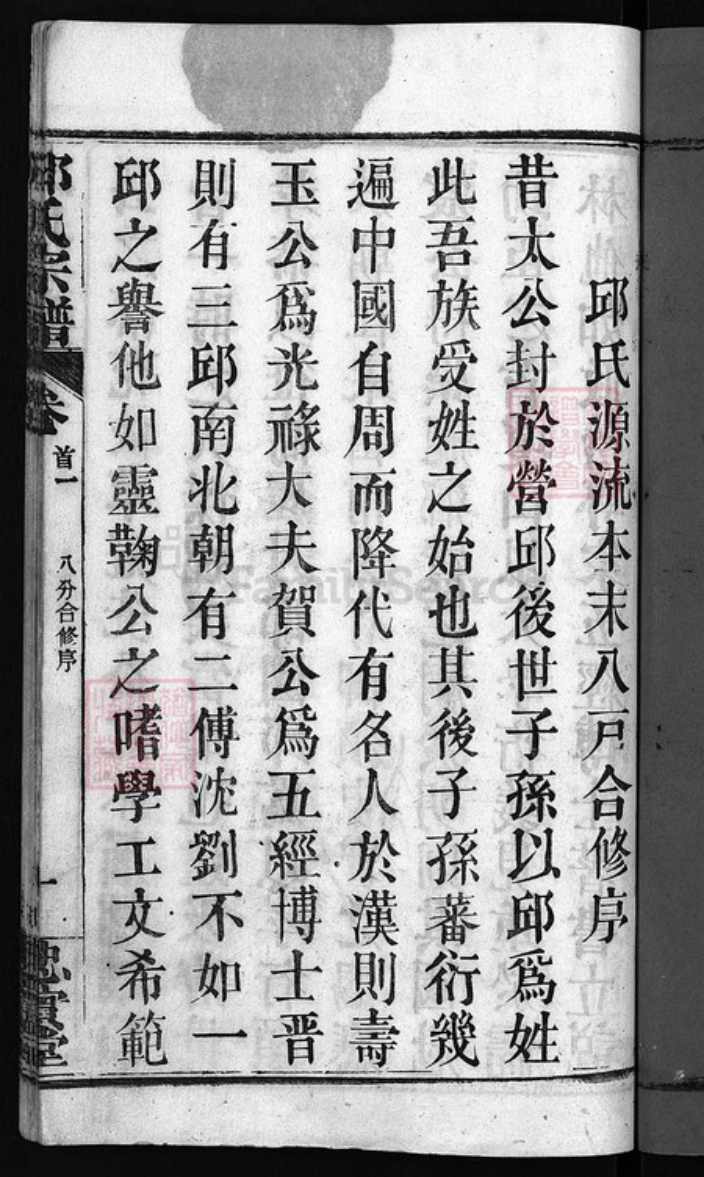 邱氏源流本末八戸合修序
昔太公封於營邱後世子孫以邱爲姓
此吾族受姓之始也其後子孫蕃衍幾
遍中國自周而降代有名人於漢則壽
玉公爲光祿大夫賀公爲五經博士晋
則有三邱南北朝有二傅沈劉不如一
邱之譽他如靈鞠公之嗜學工文希範
邱氏宗譜
卷首一
八分合修序
一
忠實堂
FamilySearch